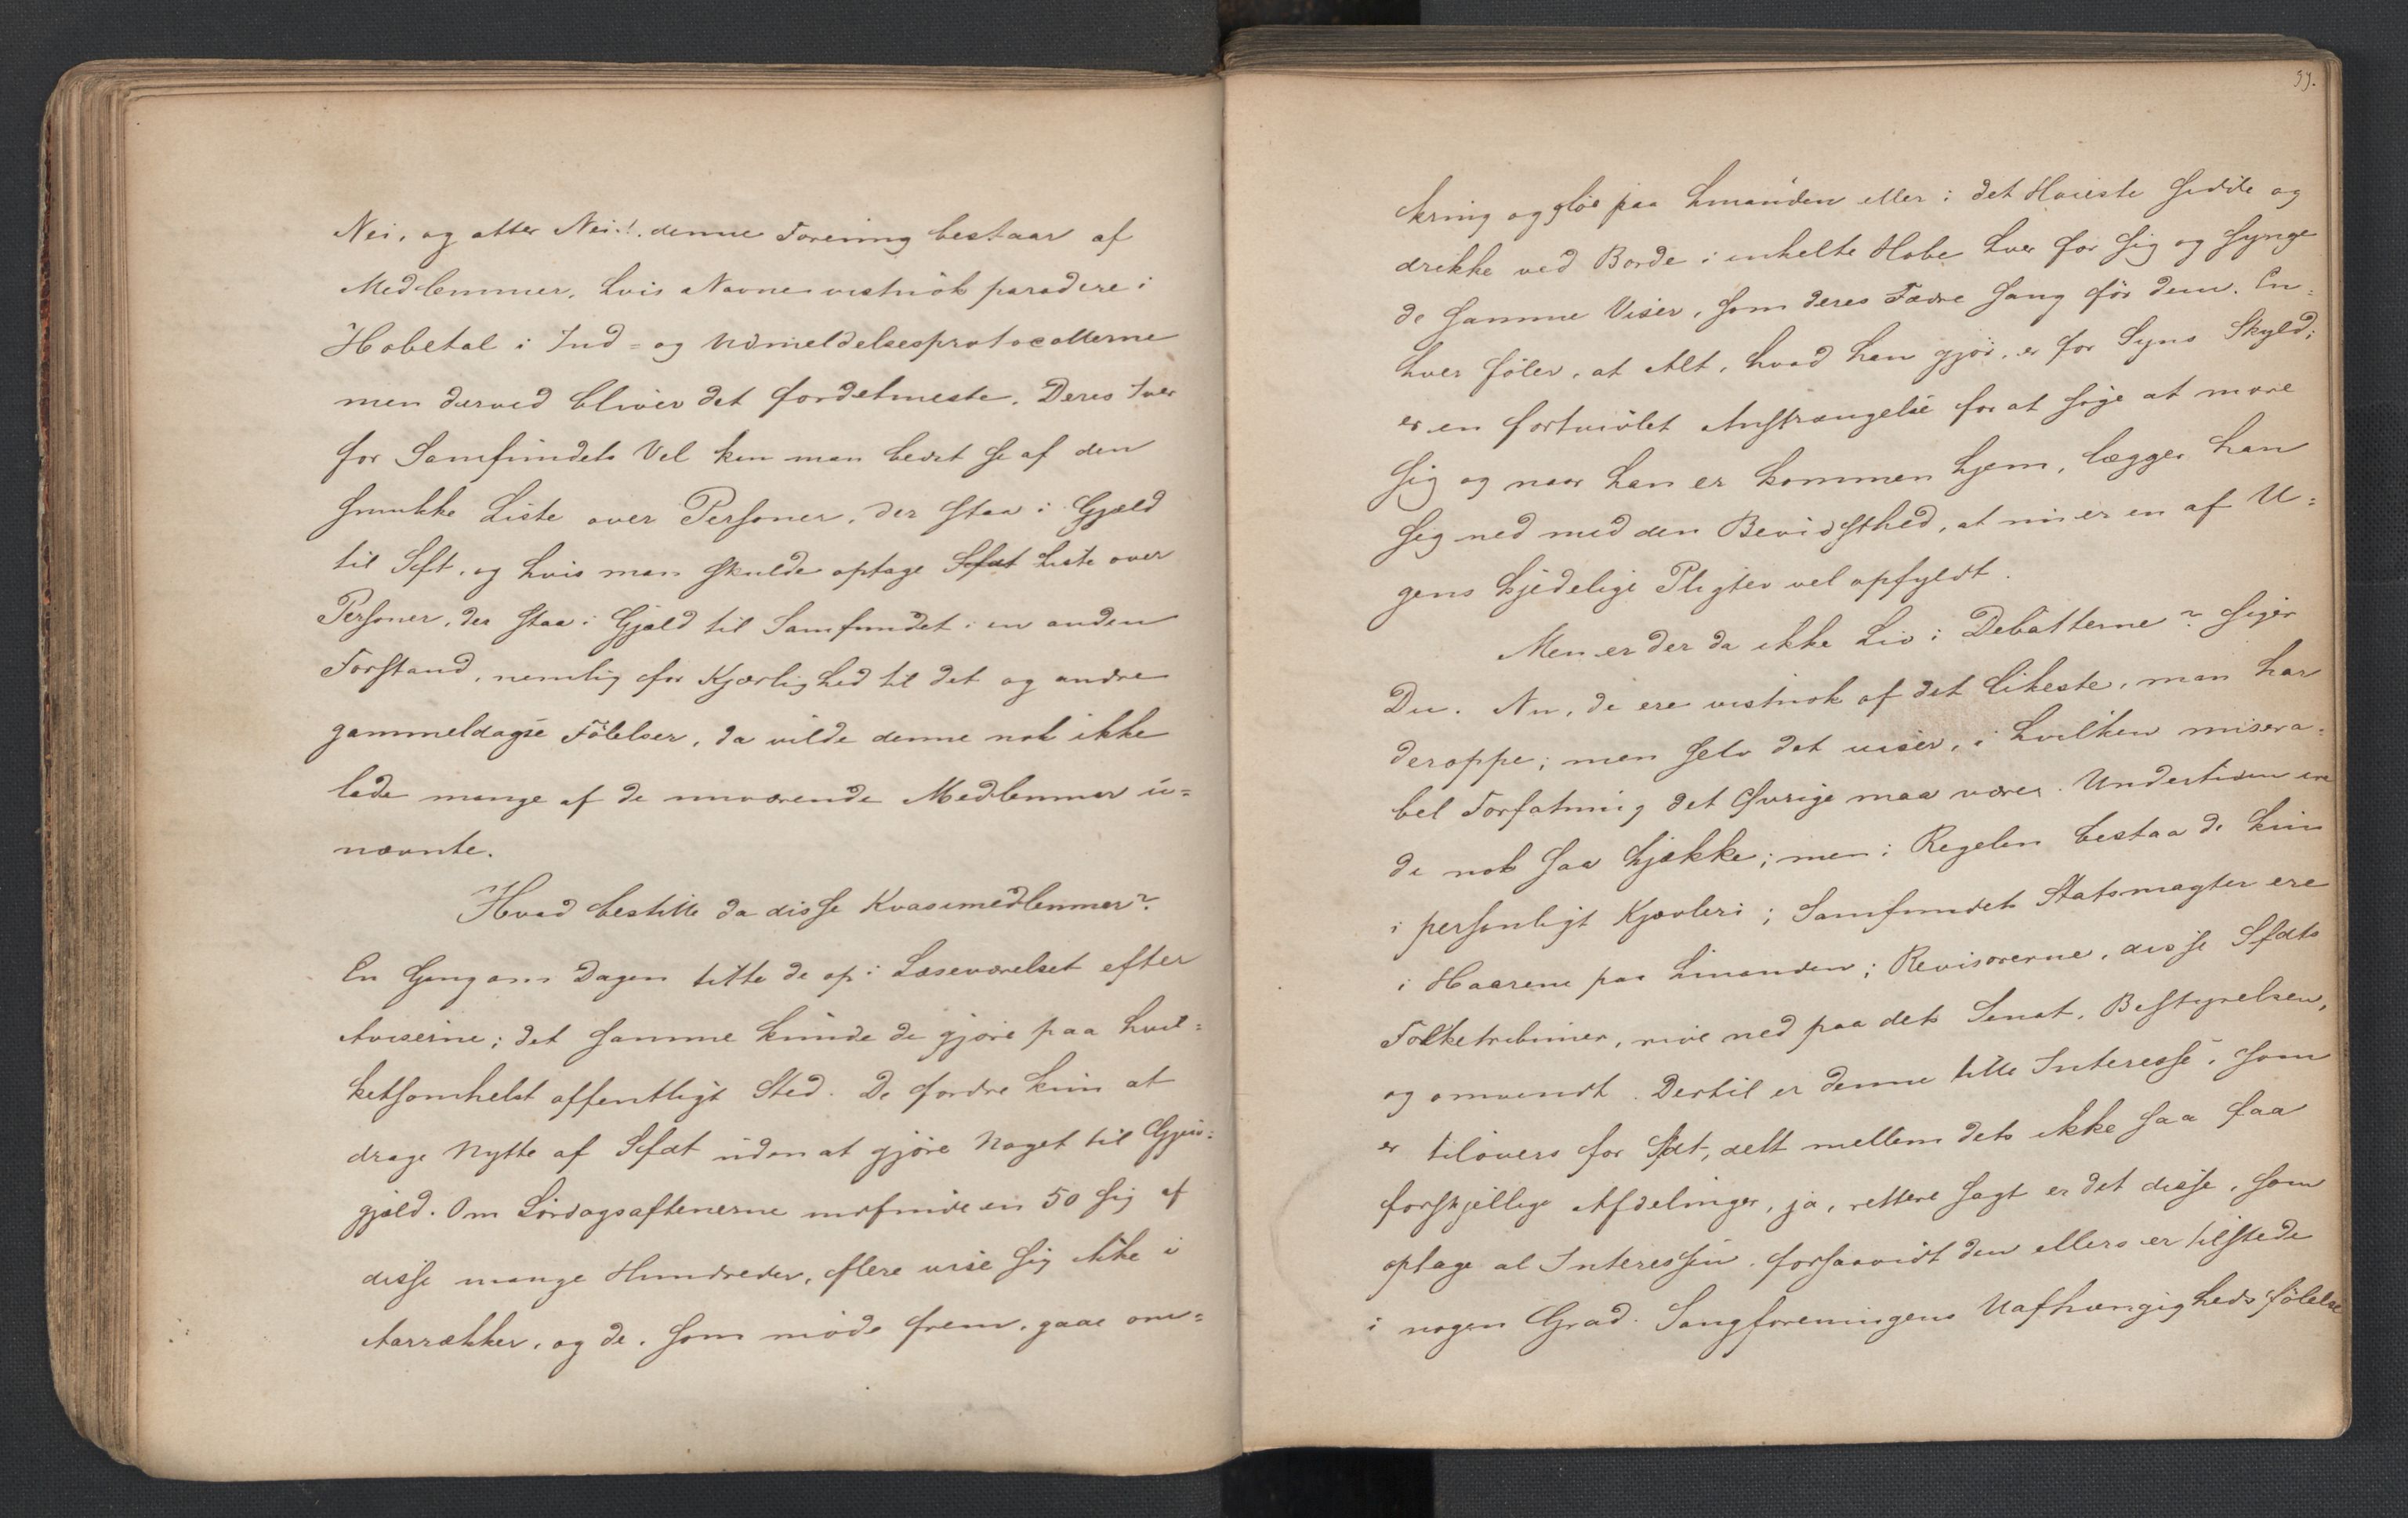 Nei, og atter Nei!. denne Forening bestaar af
Medlemmer, hvis Navne vistnok paradere i
Hobetal i Ind- og Udmeldelsesprotocollerne
men derved bliver det fordetmeste. Deres Iver
for Samfundets Vel kan man bedst se af den
smukke Liste over Personer, der staa i Gjæld
til Sft. og hvis man skulde optage Liste over
Personer, der staa i Gjæld til Samfundet i en anden
Forstand, nemlig for Kjærlighed til det og andre
gammeldagse Følelser, da vilde denne nok ikke
lade mange af de nuværende Medlemmer u-
nævnte.
Hvad bestille da disse Kvasimedlemmer?
En Gang om Dagen titte de op i Læseværelset efter
Aviserne; det samme kunde de gjøre paa hvil-
ketsomhelst offentligt Sted. De fordre kun at
drage Nytte af Sfdt uden at gjøre Noget til Gjen-
gjæld. Om Lørdagsaftenerne indfinde en 50 sig af
disse mange Hundreder, flere vise sig ikke i
Aarrækker, og de, som møde frem, gaae om-
99.
kring og gloe paa hinanden eller i det Høieste sidde og
drikke ved Borde i enkelte Hobe hver for sig og synge
de samme Viser, som deres Fædre sang før dem. En-
hver føler, at Alt, hvad han gjør, er for Syns Skyld;
er en fortvivlet Anstrængelse for at søge at more
sig og naar han er kommen hjem, lægger han
sig ned med den Bevidsthed, at nu er en af U-
gens kjedelige Pligter vel opfyldt.
Men er der da ikke Liv i Debatterne? siger
Du. Nu, de ere vistnok af det Likeste, man har
deroppe; men selv det viser, i hvilken misera-
bel Forfatning det Øvrige maa være. Undertiden ere
de nok saa kjække; men i Regelen bestaa de kun
i personligt Kjævleri; Samfundets Statsmagter ere
i Haarene paa hinanden; Revisorerne, disse Sfdts
Folketribuner, rive ned paa dets Senat, Bestyrelsen,
og omvendt. Dertil er denne lille Interesse, som
er tilovers for Sfdt, delt mellem dets ikke saa faa
forskjellige Afdelinger, ja, rettere sagt er det disse, som
optage al Interessen, forsaavidt den ellers er tilstede
i nogen Grad. Sangforeningens Uafhængighedsfølelse